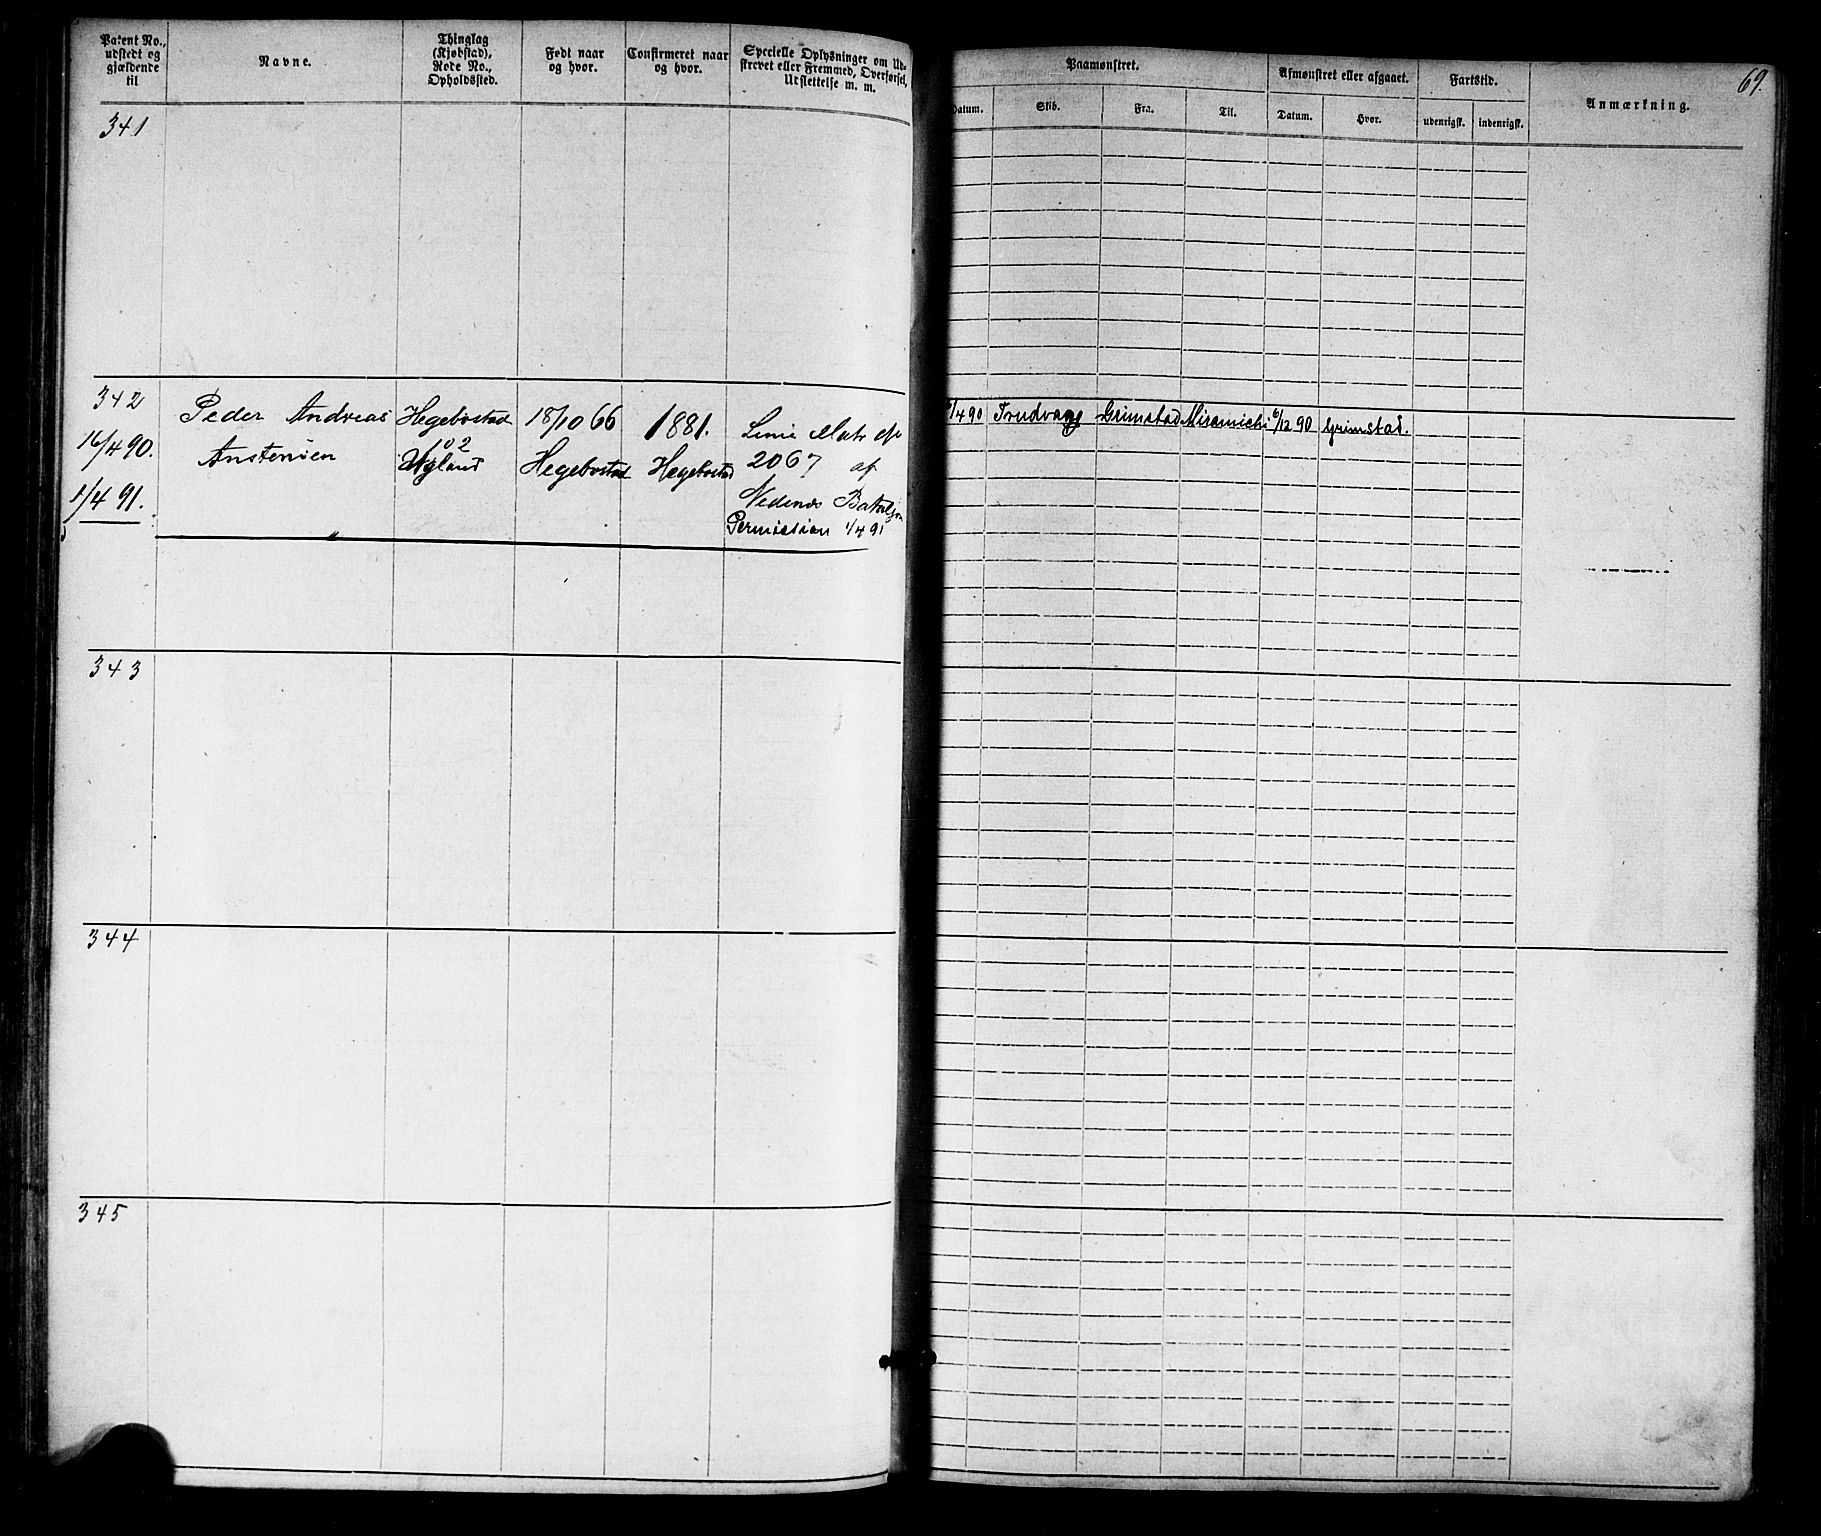 Patent No., udstedt og gjældende til
Navne.
Thinglag (Kjøbstad), Rode No., Opholdssted.
Født naar og hvor.
Confirmeret naar og hvor.
Specielle Oplysninger om Udskrevet eller Fremmed, Overførsel, Udslettelse m. m.
Paamønstret.
Afmønstret eller afgaaet.
Fartstid.
69.
Datum.
Skib.
Fra.
Til.
Datum.
Hvor.
udenrigsk.
indenrigsk.
Anmærkning.
341
342
Peder Andreas
Hegebostad
18/10 66
1881.
Linie Matr
/4 90
Trudvang
Grimstad
Miramichi
6/12 90
Grimstad.
16/4 90.
Anstensen
102
2067 af
Hegebostad
Hegebostad
1/4 91.
Nedenæs Bataljon
Permission 1/4 91
"
343
344
345